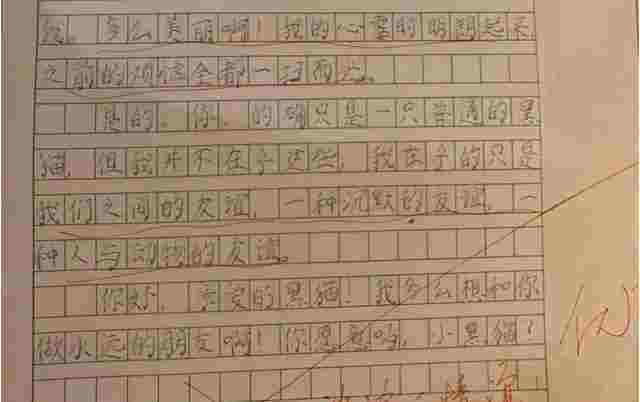 然。多么美丽啊！我的心里的明朗起来，
之前的烦恼全都一扫而光。
是的。你，的确只是一只普通的黑
猫，但我并不在乎这些，我在乎的只是
我们之间的友谊，一种沉默的友谊，一
种人与动物的友谊。
你好，亲爱的黑猫！我多么想和你
做永远的朋友啊！你愿意吗，小黑猫！